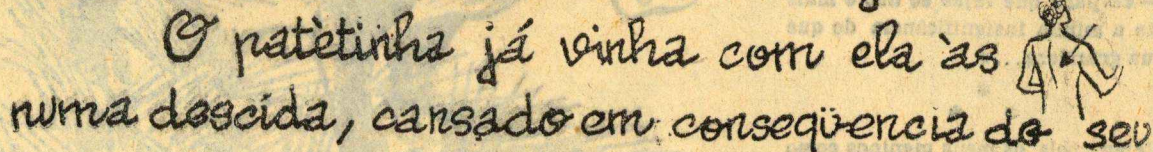 O patètinha já vinha com ela às
numa descida, cansado em conseqüencia do seu